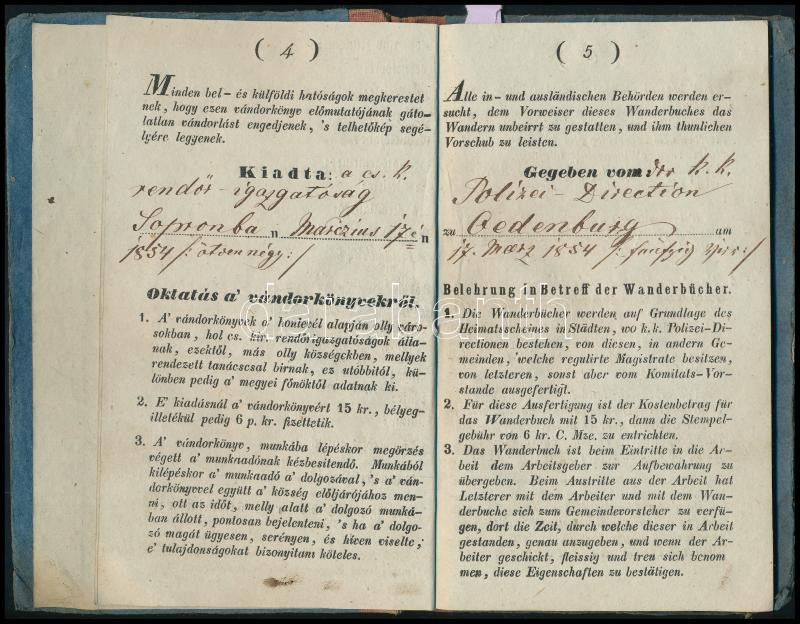 ( 4 )
Minden bel- és külföldi hatóságok megkerestet
nek, hogy ezen vándorkönyv előmutatójának gáto-
latlan vándorlást engedjenek, 's telhetőkép segé-
lyére legyenek.
Kiadta: a cs. k.
rendőr-igazgatóság
Sopronba n Marczius 17én
1854 /: ötven négy:/
Oktatás a' vándorkönyvekről.
1. A' vándorkönyvek a' honlevél alapján olly váro-
sokban, hol cs. kir. rendőrigazgatóságok álla-
nak, ezektől, más olly községekben, mellyek
rendezett tanácscsal birnak, ez utóbbitól, kü-
lönben pedig a' megyei főnöktől adatnak ki.
2. E' kiadásnál a' vándorkönyvért 15 kr., bélyeg-
illetékül pedig 6 p. kr. fizettetik.
3. A' vándorkönyv, munkába lépéskor megőrzés
végett a' munkaadónak kézbesitendő. Munkából
kilépéskor a' munkaadó a' dolgozóval, 's a' ván-
dorkönyvvel együtt a' község előljárójához men-
ni, ott az időt, melly alatt a' dolgozó munká-
ban állott, pontosan bejelenteni, 's ha a' dolgo-
zó magát ügyesen, serényen, és híven viselte,
e' tulajdonságokat bizonyitani köteles.
( 5 )
Alle in- und ausländischen Behörden werden er-
sucht, dem Vorweiser dieses Wanderbuches das
Wandern unbeirrt zu gestatten, und ihm thunlichen
Vorschub zu leisten.
Gegeben vom der k. k.
Polizei-Direction
zu Oedenburg am
17. Maerz 1854 /: fünfzig vier:/
Belehrung in Betreff der Wanderbücher.
1. Die Wanderbücher werden auf Grundlage des
Heimatsscheines in Städten, wo k. k. Polizei-Di-
rectionen bestehen, von diesen, in andern Ge-
meinden, welche regulirte Magistrate besitzen,
von letzteren, sonst aber vom Komitats-Vor-
stande ausgefertigt.
2. Für diese Ausfertigung ist der Kostenbetrag für
das Wanderbuch mit 15 kr., dann die Stempel-
gebühr von 6 kr. C. Mze. zu entrichten.
3. Das Wanderbuch ist beim Eintritte in die Ar-
beit dem Arbeitsgeber zur Aufbewahrung zu
übergeben. Beim Austritte aus der Arbeit hat
Letzterer mit dem Arbeiter und mit dem Wan-
derbuche sich zum Gemeindevorsteher zu verfü-
gen, dort die Zeit, durch welche dieser in Arbeit
gestanden, genau anzugeben, und wenn der Ar-
beiter geschickt, fleissig und treu sich benom
men, diese Eigenschaften zu bestätigen.
darabanth